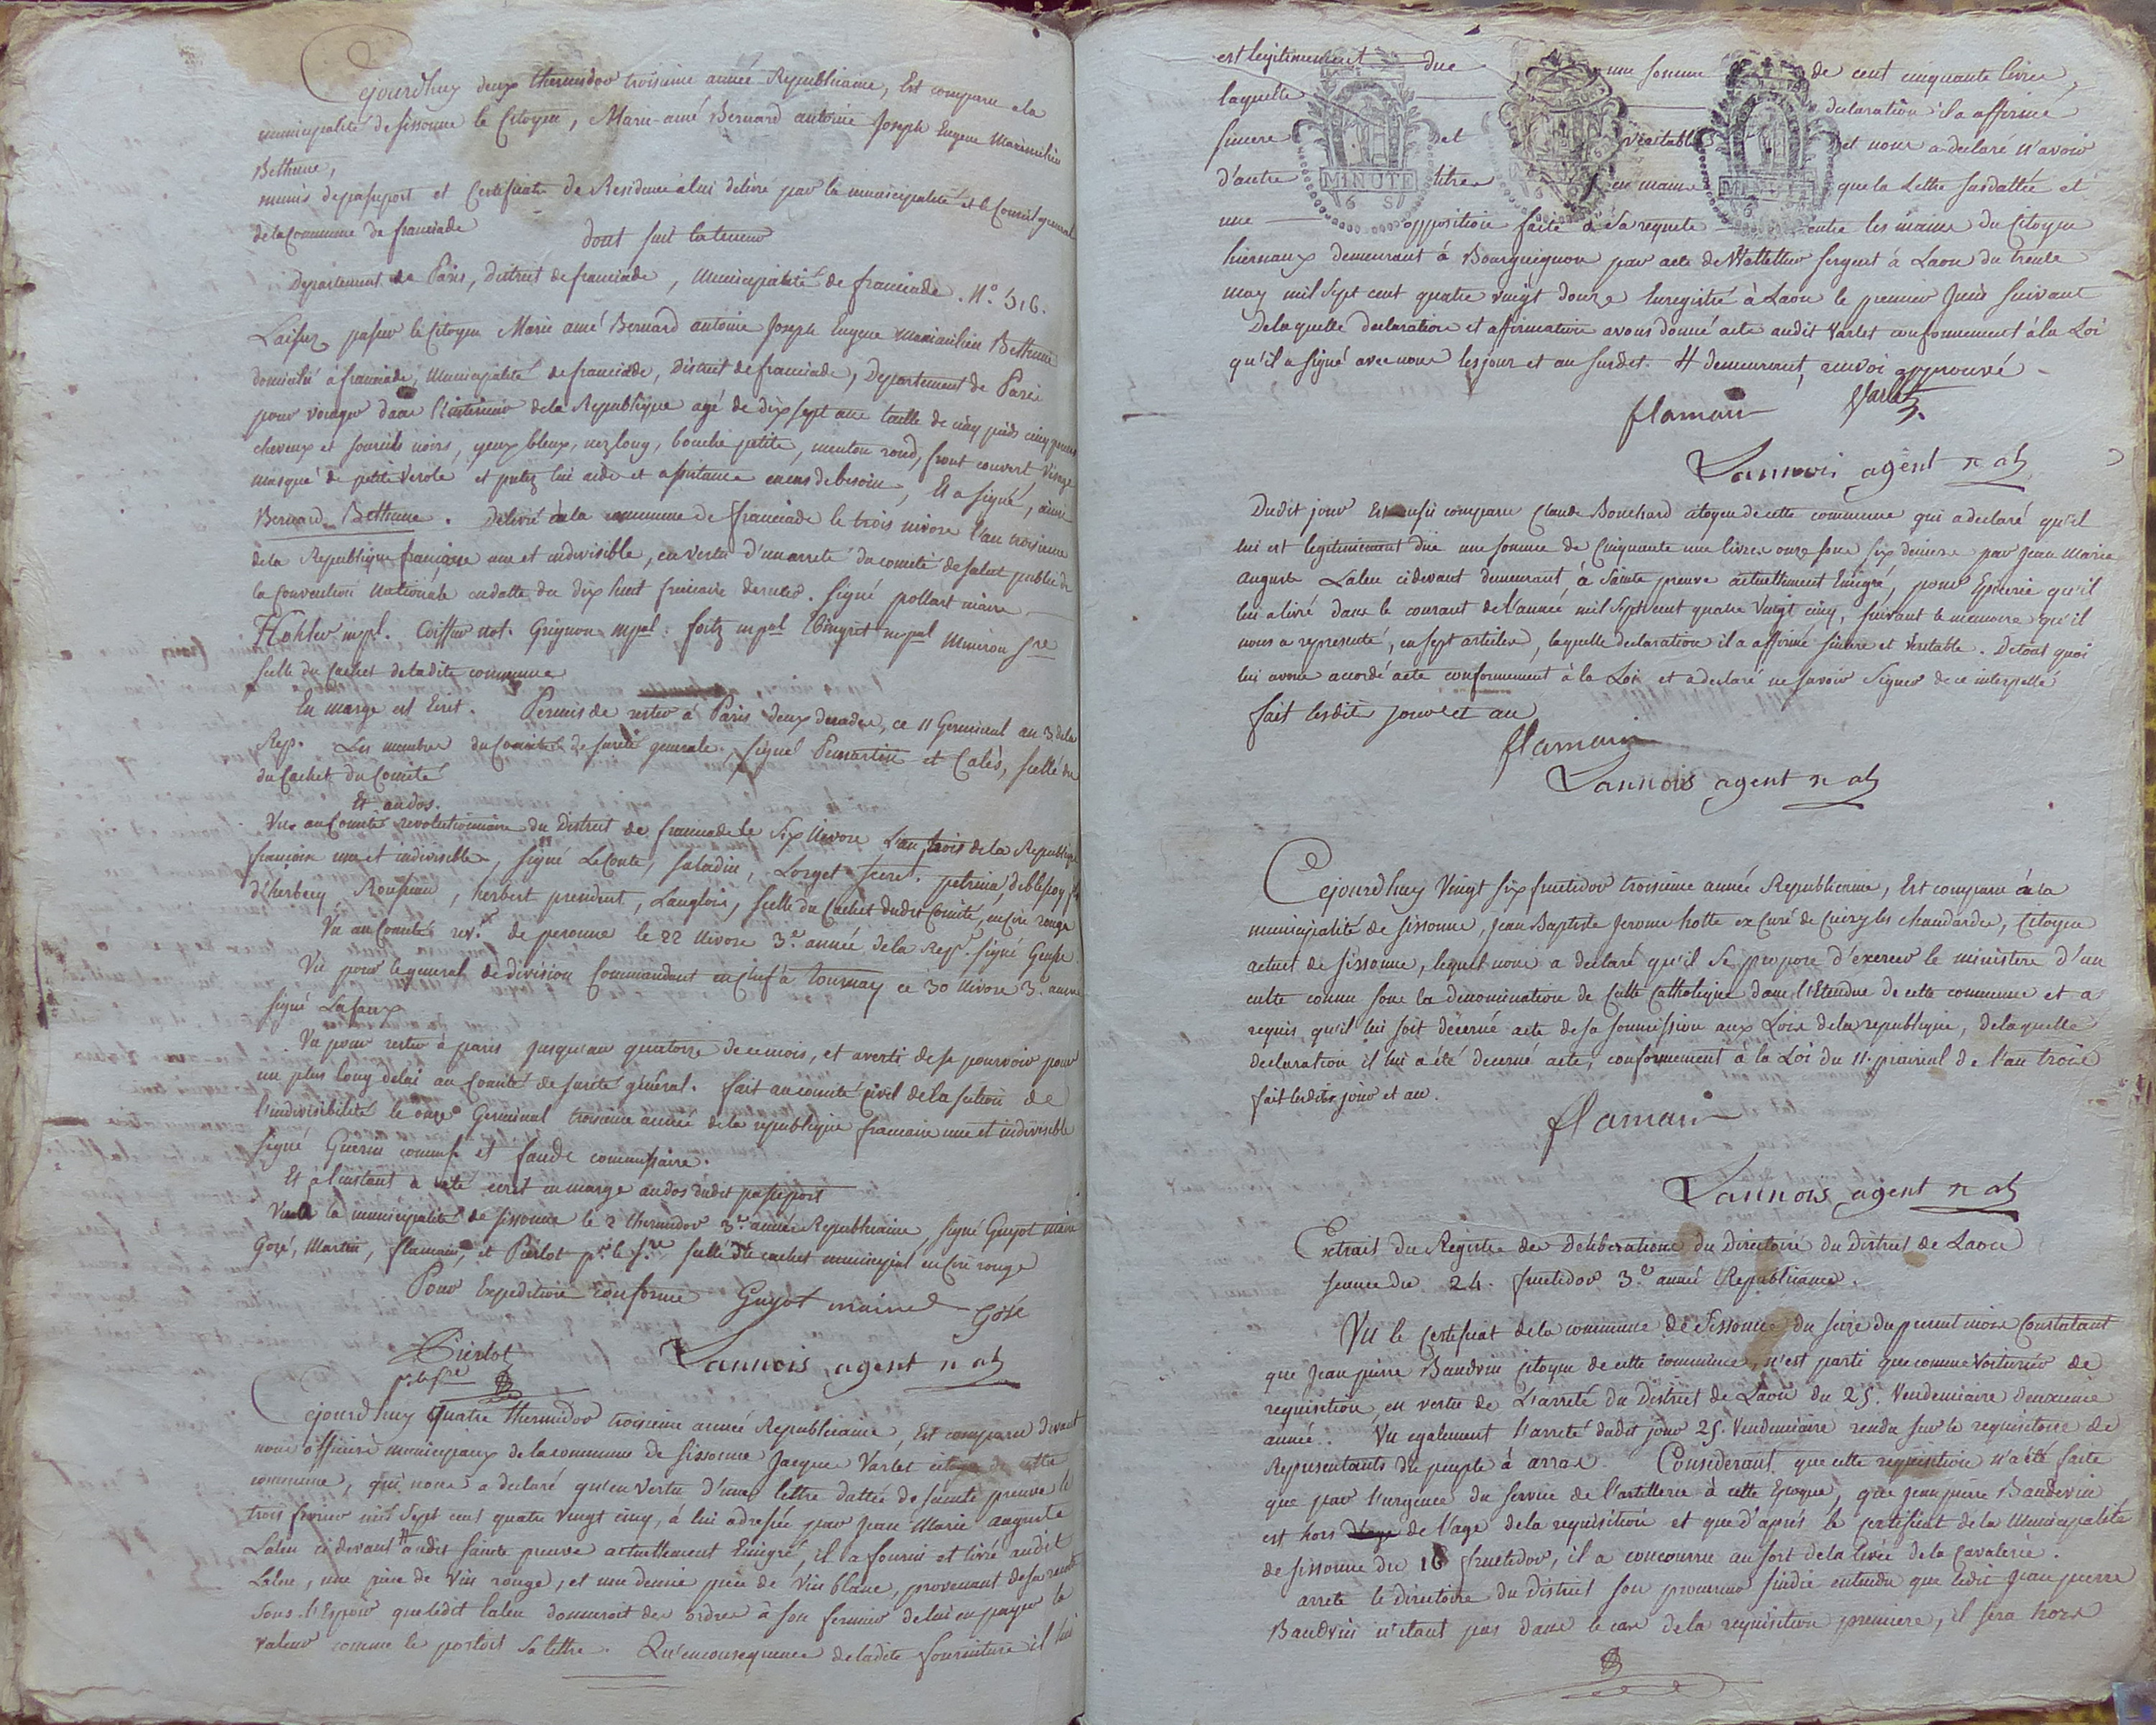 Cejourdhuy deux thermidor troisieme année Republicaine, Est comparu a la
municipalité de sissonne le Citoyen, Marie-amé Bernard antoine Joseph Eugene Maximilien
Bethune,
munis de passeport et Certificate de Residence a lui delivré par la municipalité et le Conseil general
de la Commune de franciade dont suit la teneur
Departement de Paris, District de franciade, Municipalité de franciade. N.o 516.
Laissez passer le Citoyen Marie amé Bernard antoine Joseph Eugene Maximilien Bethune
domicilié à franciade, Municipalité de franciade, District de franciade, Departement de Paris
pour voiager dans l'interieur de la Republique agé de dix sept ans taille de cinq pieds cinq pouces
cheveux et sourcils noirs, yeux bleux, nez long, bouche petite, menton rond, front couvert, visage
masqué de petite verole et pretez lui aide et assistance en cas de besoin, Et a signé, ainsi
Bernard Bethune. Delivré à la commune de franciade le trois nivose l'an troisieme
de la Republique française une et indivisible, en vertu d'un arreté du comité de salut public de
la Convention Nationale en datte du dix huit frimaire dernier. Signé pollart maire
Kohler mpl. Coiffier not. Grignon mpal. foitz mpal mpal Mimron Sre
scellé du Cachet de ladite commune
En marge est Ecrit. Permis de rester à Paris deux decades, ce 11 Germinal an 3 de la
Rep. Les membres du Comité de sureté generale. Signé Pemartin et Calès, scellé du
du Cachet du Comité
Et au dos.
Vu au Comité revolutionnaire du District de franciade le Six Nivose L'an trois de la Republique
francaise une et indivisible, signé LeConte, saladin, Lorget secret. petrina,
d'herbecy Rousseau, herbert president, Langlois, scellé du Cachet dudit Comité, en cire rouge
Vu au Comité rev.re de peronne le 22 Nivose 3.e année de la Rep. signé
Vu pour le general de division Commandant en chef à tournay ce 30 Nivose 3.e année
signé Lafaux
Vu pour rester à paris Jusqu'au quatorze de ce mois, et averti de se pourvoir pour
un plus long delai au Comité de sureté général. fait au comité Civil de la section de
l'indivisibilité le onze Germinal troisieme année de la republique francaise une et indivisible
signé Guerin commiss.e et faude commissaire.
Et à l'instant a eté ecrit en marge au dos dudit passeport
Vu à la municipalité de sissonne le 2 thermidor 3.e année Republicaine signé Guyot maire
Gozé, Martin, flamain, et Pierlot pr. le S.re scellé du cachet municipal en cire rouge
Pour Expedition conforme Guyot maire Gozé
Pierlot Lannois agent nal
pr. le Sre
Cejourd'huy quatre thermidor troisieme année Republicaine, Est comparu devant
nous officiers municipaux de la commune de sissonne Jacque Varlet citoyen de cette
commune, qui nous a declaré qu'en vertu d'une lettre dattée de sainte preuve le
trois fevrier mil sept cent quatre vingt cinq, à lui adressée par Jean Marie auguste
Laleu cidevant # audit sainte preuve actuellement Emigré, il a fourni et livré audit
Laleu, une piece de vin rouge, et une demie piece de vin blanc, provenant de sa
sous l'Espoir que ledit laleu donneroit des ordres à son fermier de lui en payer la
valeur comme le portoit sa lettre. Qu'en consequence de ladite fourniture il lui
est legitimement due une somme de cent cinquante livres,
laquelle declaration il a affirmé
sincere et veritable et nous a declaré n'avoir
d'autre titre en main que la Lettre susdattée et
une opposition faite à sa requete entre les mains du Citoyen
hiernaux demeurant à Bourguignon par acte de Wattellier sergent à Laon du trente
may mil sept cent quatre vingt douze Enregistré à Laon le premier Juin suivant
De laquelle declaration et affirmation avons donné acte audit Varlet conformement à la Loi
qu'il a signé avec nous les jour et an susdit. # demeurant, renvoi approuvé
flamain Varlet
Lannois agent nal
Dudit jour Est aussi comparu Claude Bouchard citoyen de cette commune qui a declaré qu'il
lui est legitimement due une somme de Cinquante une livres onze sous six deniers par Jean Marie
auguste Laleu cidevant demeurant à Sainte preuve actuellement Emigré, pour Epicerie qu'il
lui a livré dans le courant de l'année mil sept cent quatre vingt cinq, suivant le memoire qu'il
nous a representé, en sept articles, laquelle declaration il a affirmé sincere et veritable. De tout quoi
lui avons accordé acte conformement à la Loi et a declaré ne savoir signer de ce interpellé
fait lesdits jour et an
flamain
Lannois agent nal
Cejourdhuy Vingt six fructidor troisieme année Republicaine, Est comparu à la
municipalité de sissonne, Jean Baptiste Jerome hotte ex Curé de Cuiry les chaudardes, Citoyen
actuel de sissonne, lequel nous a declaré qu'il se propose d'exercer le ministere d'un
culte connu sous la denomination de Culte Catholique dans l'Etendue de cette commune et a
requis qu'il lui soit decerné acte de sa soumission aux Loix de la republique, de laquelle
declaration il lui a été decerné acte, conformement à la Loi du 11. prairial de l'an trois
fait lesdits jour et an.
flamain
Lannois agent nal
Extrait du Registre des Deliberations du Directoire du District de Laon
seance du 24. fructidor 3.e année Republicaine.
Vu le Certificat de la commune de Sissonne du seize du present mois Constatant
que Jean pierre Baudvin Citoyen de cette commune, n'est parti que comme Voiturier de
requisition en vertu de L'arreté du District de Laon du 25. Vendemiaire deuxieme
année. Vu egalement l'arreté dudit jour 25. Vendemiaire rendu sur le requisitoire de
Representants du peuple à arras. Considerant que cette requisition n'a été faite
que par l'urgence du service de l'artillerie à cette Epoque, que Jean pierre Baudvin
est hors de l'age de la requisition et que d'après le certificat de la Municipalité
de sissonne du 16 fructidor, il a concourru au sort de la levée de la Cavalerie.
arrete le Directoire du District son procureur sindic entendu que ledit Jean pierre
Baudvin n'etant pas dans le cas de la requisition premiere, il sera hors